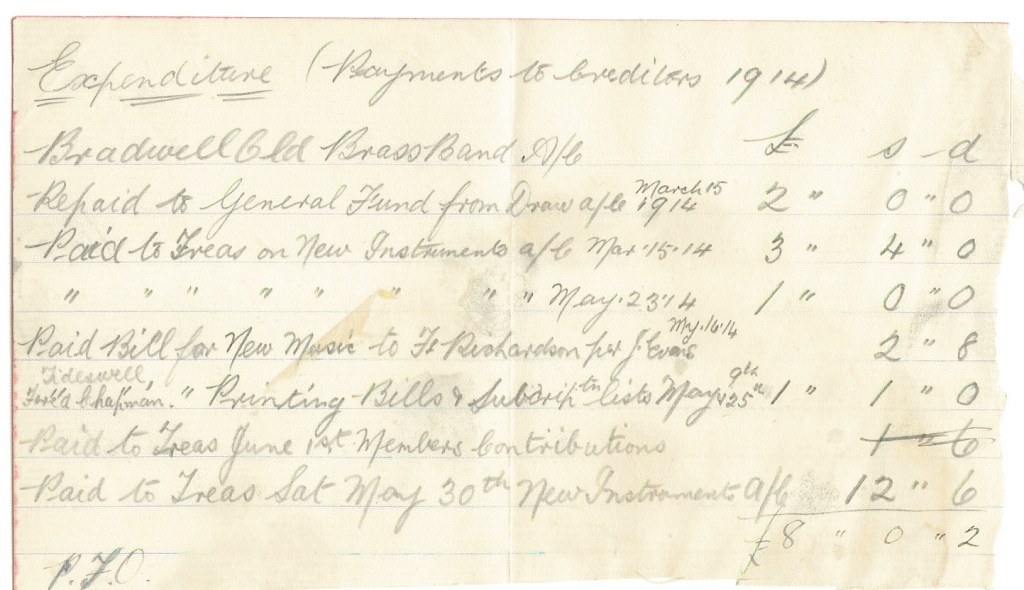 Expenditure (Payments to Creditors 1914)
Bradwell Old Brass Band A/C £ s d
Repaid to General Fund from Draw a/c March 15 1914 2 " 0 " 0
Paid to Treas on New Instruments a/c Mar. 15. 14 3 " 4 " 0
" " " " " " " " May. 23. 14 1 " 0 " 0
Paid Bill for New Music to Fr Richardson per J. Evans My. 16. 14 2 " 8
Tideswell
Fore'd Chapman. " Printing Bills & Subscriptn lists May 9th & 25th 1 " 1 " 0
Paid to Treas June 1st Members Contributions 1 " 6
Paid to Treas Sat May 30th New Instruments A/C 12 " 6
£8 " 0 " 2
P.T.O.